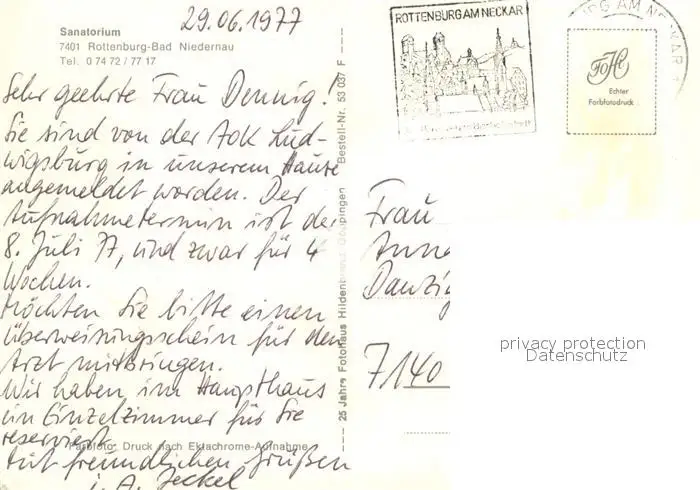 29.06.1977
Sanatorium
7401 Rottenburg-Bad Niedernau
Tel. 0 74 72 / 77 17
Sehr geehrte Frau Dennig!
Sie sind von der AOK Lud-
wigsburg in unserem Hause
angemeldet worden. Der
Aufnahmetermin ist der
8. Juli 77, und zwar für 4
Wochen.
Möchten Sie bitte einen
Überweisungsschein für den
Arzt mitbringen.
Wir haben im Haupthaus
ein Einzelzimmer für Sie
reserviert.
Farbfoto: Druck nach Ektachrome-Aufnahme
Mit freundlichen Grüßen
i. A. Jeckel
25 Jahre Fotohaus Göppingen Bestell-Nr. 53 037 F
ROTTENBURG AM NECKAR
RG AM NECKAR
FOHI
Echter
Farbfotodruck
Frau
Anne
Danzi
7140
privacy protection
Datenschutz